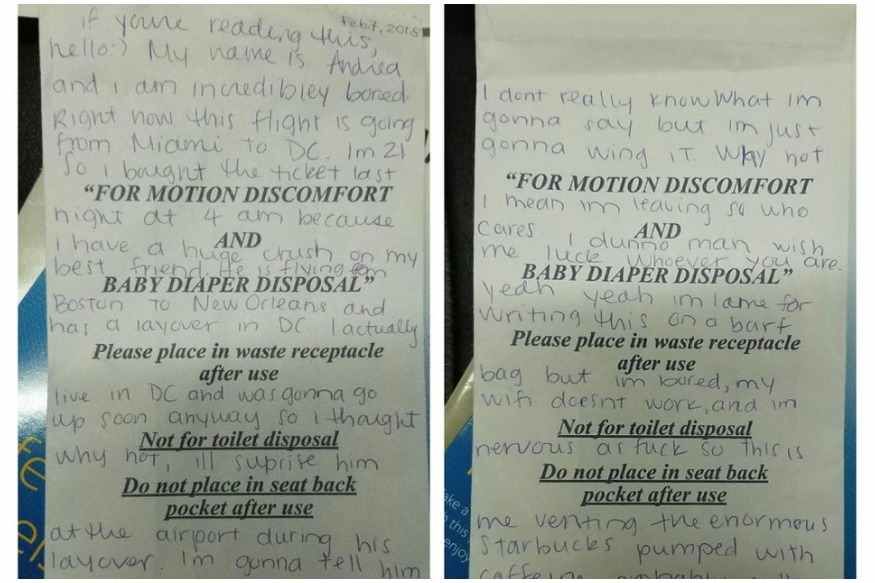 if youre reading this,
Feb 7, 2015
hello:) My name is Andrea
and i am incredibley bored.
Right now this flight is going
from Miami to DC. Im 21
So i bought the ticket last
“FOR MOTION DISCOMFORT
night at 4 am because
AND
i have a huge crush on my
best friend. He is flying from
BABY DIAPER DISPOSAL”
Boston to New Orleans and
has a layover in DC I actually
Please place in waste receptacle
after use
live in DC and was gonna go
up soon anyway so i thought
Not for toilet disposal
why not, ill suprise him
Do not place in seat back
pocket after use
at the airport during his
layover. Im gonna tell him
I dont really know What im
gonna say but im just
gonna wing iT. Why not
“FOR MOTION DISCOMFORT
I mean im leaving so who
cares I dunno man wish
AND
me luck whoever you are.
BABY DIAPER DISPOSAL”
yeah yeah im lame for
writing this on a barf
Please place in waste receptacle
after use
bag but im bored, my
wifi doesnt work, and im
Not for toilet disposal
nervous as fuck so this is
Do not place in seat back
pocket after use
me venting the enormous
Starbucks pumped with
caffeine